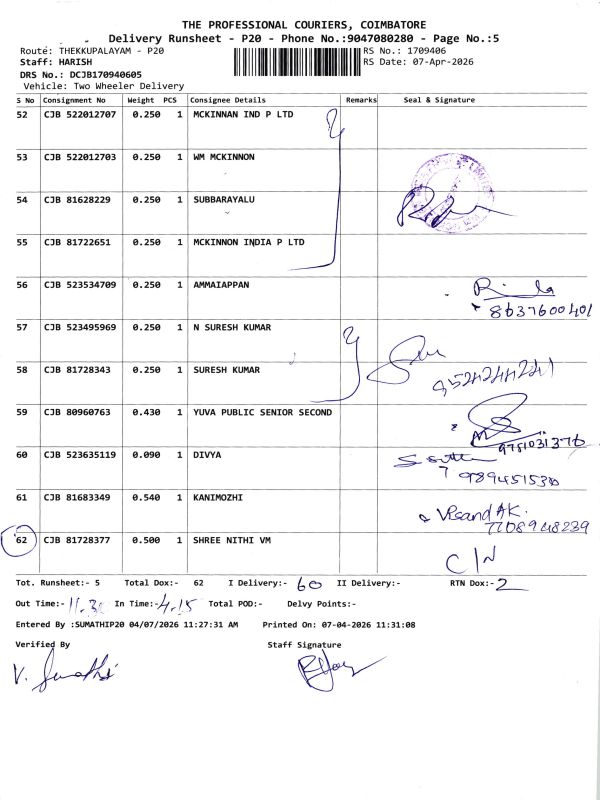 THE PROFESSIONAL COURIERS, COIMBATORE
Delivery Runsheet - P20 - Phone No.:9047080280 - Page No.:5
Route: THEKKUPALAYAM - P20
RS No.: 1709406
Staff: HARISH
RS Date: 07-Apr-2026
DRS No.: DCJB170940605
Vehicle: Two Wheeler Delivery
S No Consignment No Weight PCS Consignee Details Remarks Seal & Signature
52 CJB 522012707 0.250 1 MCKINNAN IND P LTD
53 CJB 522012703 0.250 1 WM MCKINNON
54 CJB 81628229 0.250 1 SUBBARAYALU
55 CJB 81722651 0.250 1 MCKINNON INDIA P LTD
56 CJB 523534709 0.250 1 AMMAIAPPAN
8637600401
57 CJB 523495969 0.250 1 N SURESH KUMAR
58 CJB 81728343 0.250 1 SURESH KUMAR
59 CJB 80960763 0.430 1 YUVA PUBLIC SENIOR SECOND
9751031376
60 CJB 523635119 0.090 1 DIVYA
61 CJB 81683349 0.540 1 KANIMOZHI
7708948239
62 CJB 81728377 0.500 1 SHREE NITHI VM
C/N
Tot. Runsheet:- 5 Total Dox:- 62 I Delivery:- 60 II Delivery:- RTN Dox:- 2
Out Time:- 11.30 In Time:- 4.15 Total POD:- Delvy Points:-
Entered By :SUMATHIP20 04/07/2026 11:27:31 AM Printed On: 07-04-2026 11:31:08
Verified By Staff Signature
V. Sumathi